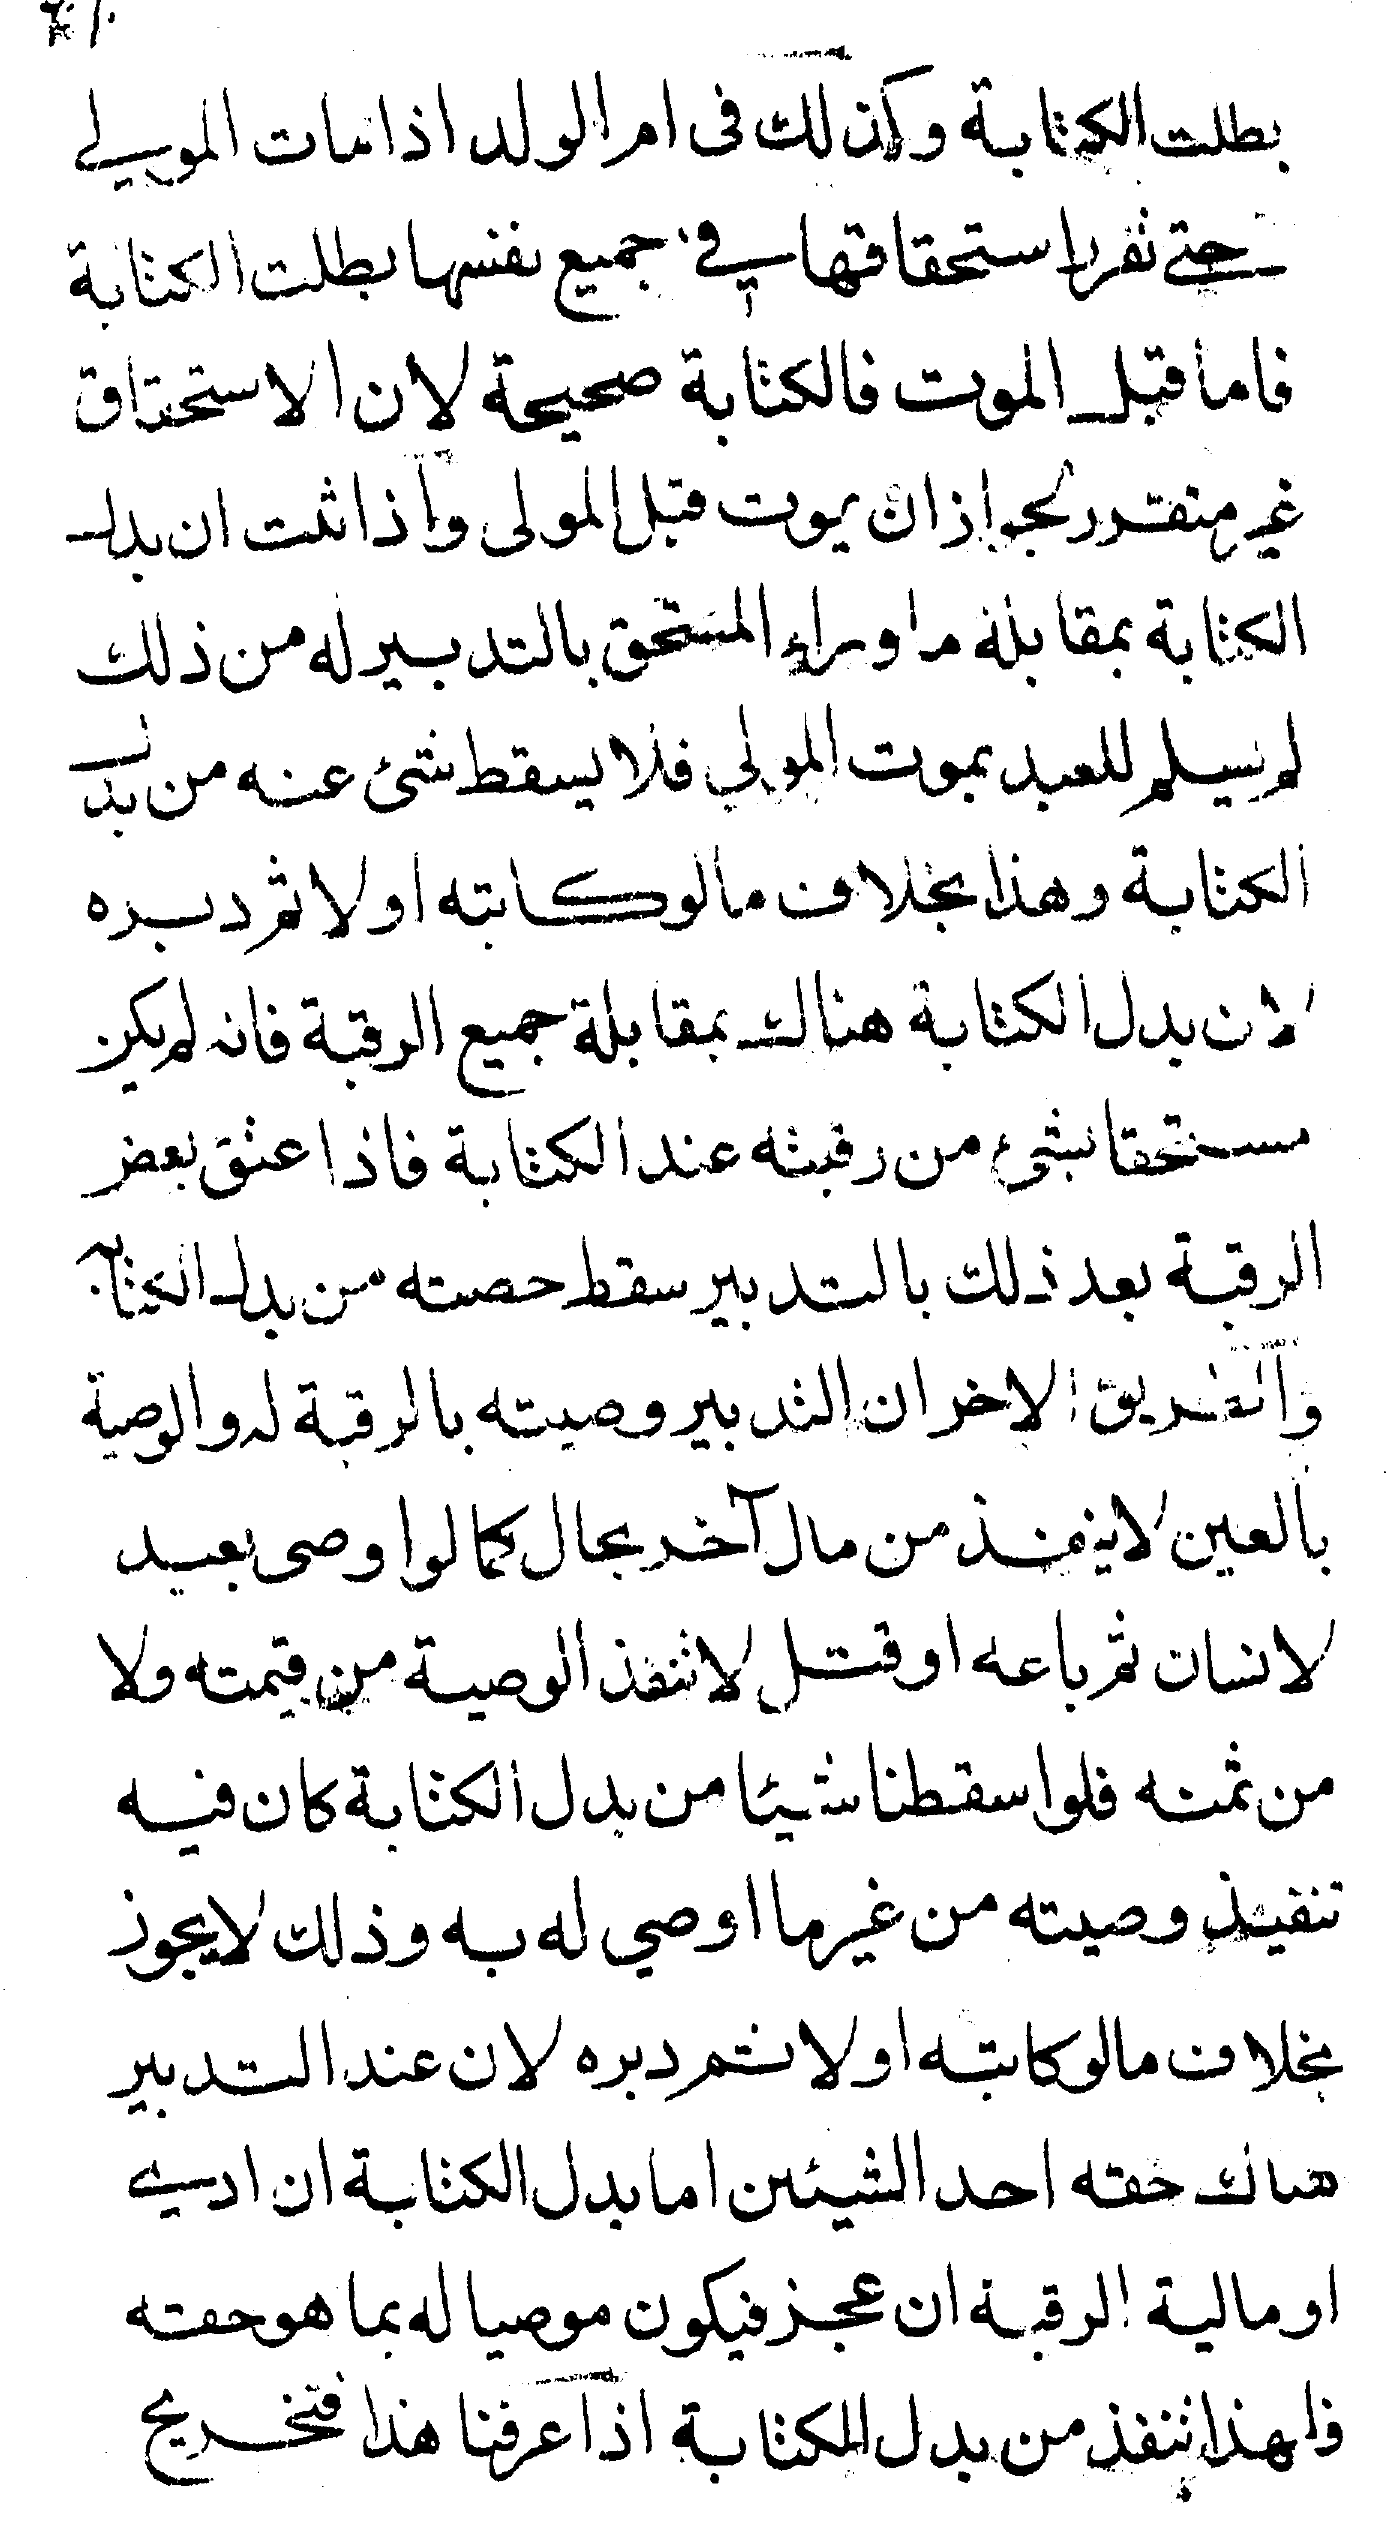 بطلت الكتابة وكذلك في ام الولد اذا مات المولي
حتي تقرر استحقاقها في جميع نفسها بطلت الكتابة
فاما قبل الموت فالكتابة صحيحة لان الاستحقاق
غير متقرر لجواز ان يموت قبل المولى واذا ثبت ان بدل
الكتابة بمقابلة ما وراء المستحق بالتدبير له من ذلك
لم يسلم للعبد بموت المولي فلا يسقط شئ عنه من بدل
الكتابة وهذا بخلاف ما لو كاتبه اولا ثم دبره
لان بدل الكتابة هناك بمقابلة جميع الرقبة فانه لم يكن
مستحقا بشئ من رقبته عند الكتابة فاذا عتق بعض
الرقبة بعد ذلك بالتدبير سقط حصته من بدل الكتابة
والطريق الاخر ان التدبير وصيته بالرقبة له والوصية
بالعين لا ينفذ من مال آخر بحال كما لو اوصى بعبد
لانسان ثم باعه او قتل لا تنفذ الوصية من قيمته ولا
من ثمنه فلو اسقطنا شيئا من بدل الكتابة كان فيه
تنفيذ وصيته من غير ما اوصي له به وذلك لا يجوز
بخلاف ما لو كاتبه اولا ثم دبره لان عند التدبير
هناك حقه احد الشيئين اما بدل الكتابة ان ادي
او مالية الرقبة ان عجز فيكون موصيا له بما هو حقه
فلهذا تنفذ من بدل الكتابة اذا عرفنا هذا فتخريج